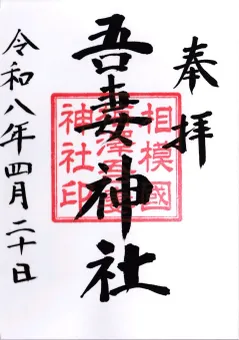 奉拝
吾妻神社
相模國
神社印
令和八年四月二十日